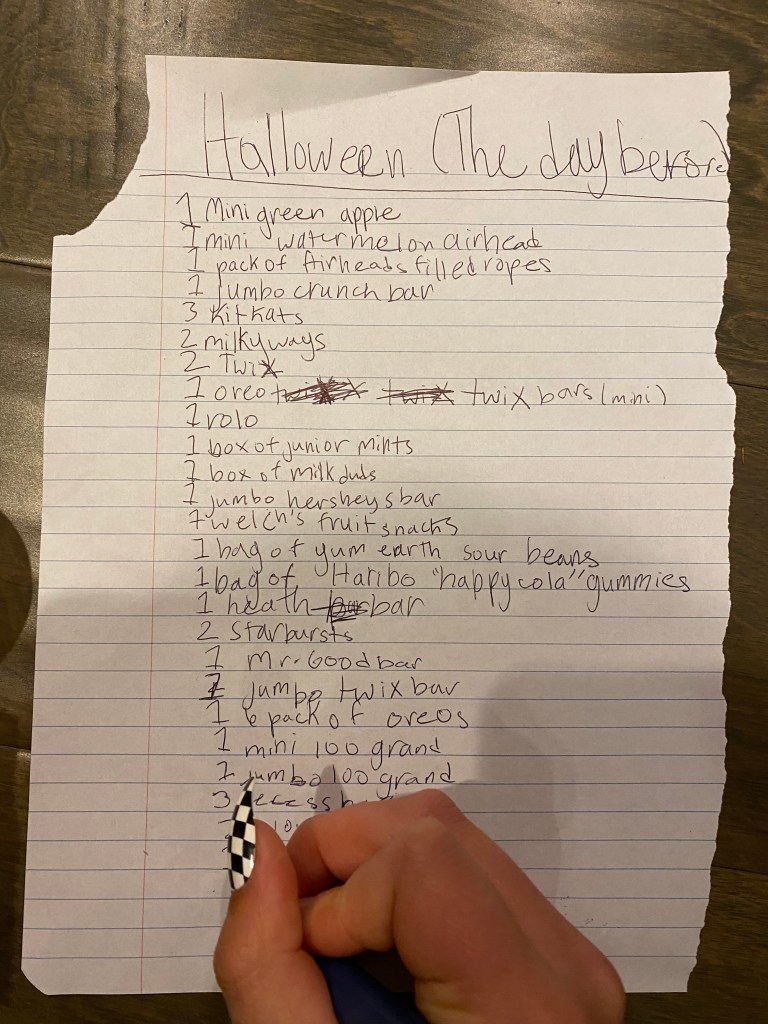 Halloween (The day before)
1 Mini green apple
1 mini watermelon airhead
1 pack of Airheads filled ropes
1 jumbo crunch bar
3 KitKats
2 milkyways
2 Twix
1 oreo twix twix twix bars (mini)
1 rolo
1 box of junior mints
1 box of milk duds
1 jumbo hersheys bar
1 welch's fruit snacks
1 bag of yum earth sour beans
1 bag of Haribo "happy cola" gummies
1 heath bar
2 Starbursts
1 Mr. Good bar
1 jumbo twix bar
1 6 pack of oreos
1 mini 100 grand
1 jumbo 100 grand
3